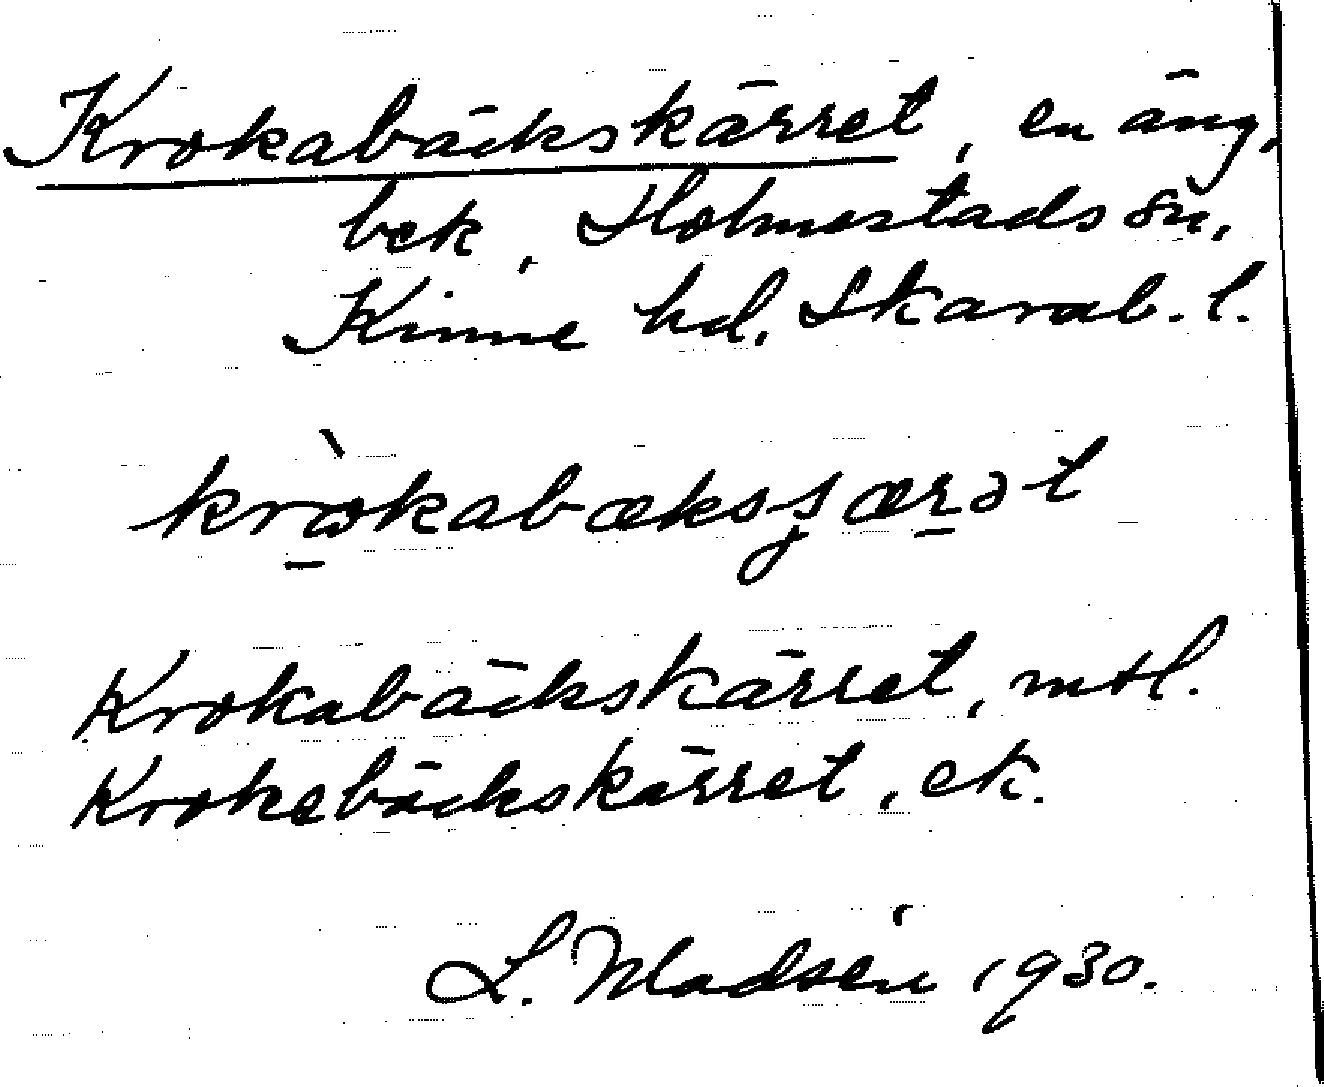 Krokabäckskärret, en äng,
bek, Holmestads sn,
Kinne hd, Skarab. l.
kròkabæksʃæṟət
Krokabäckskärret, mtl.
Krokebäckskärret, ek.
L. Madsén 1930.